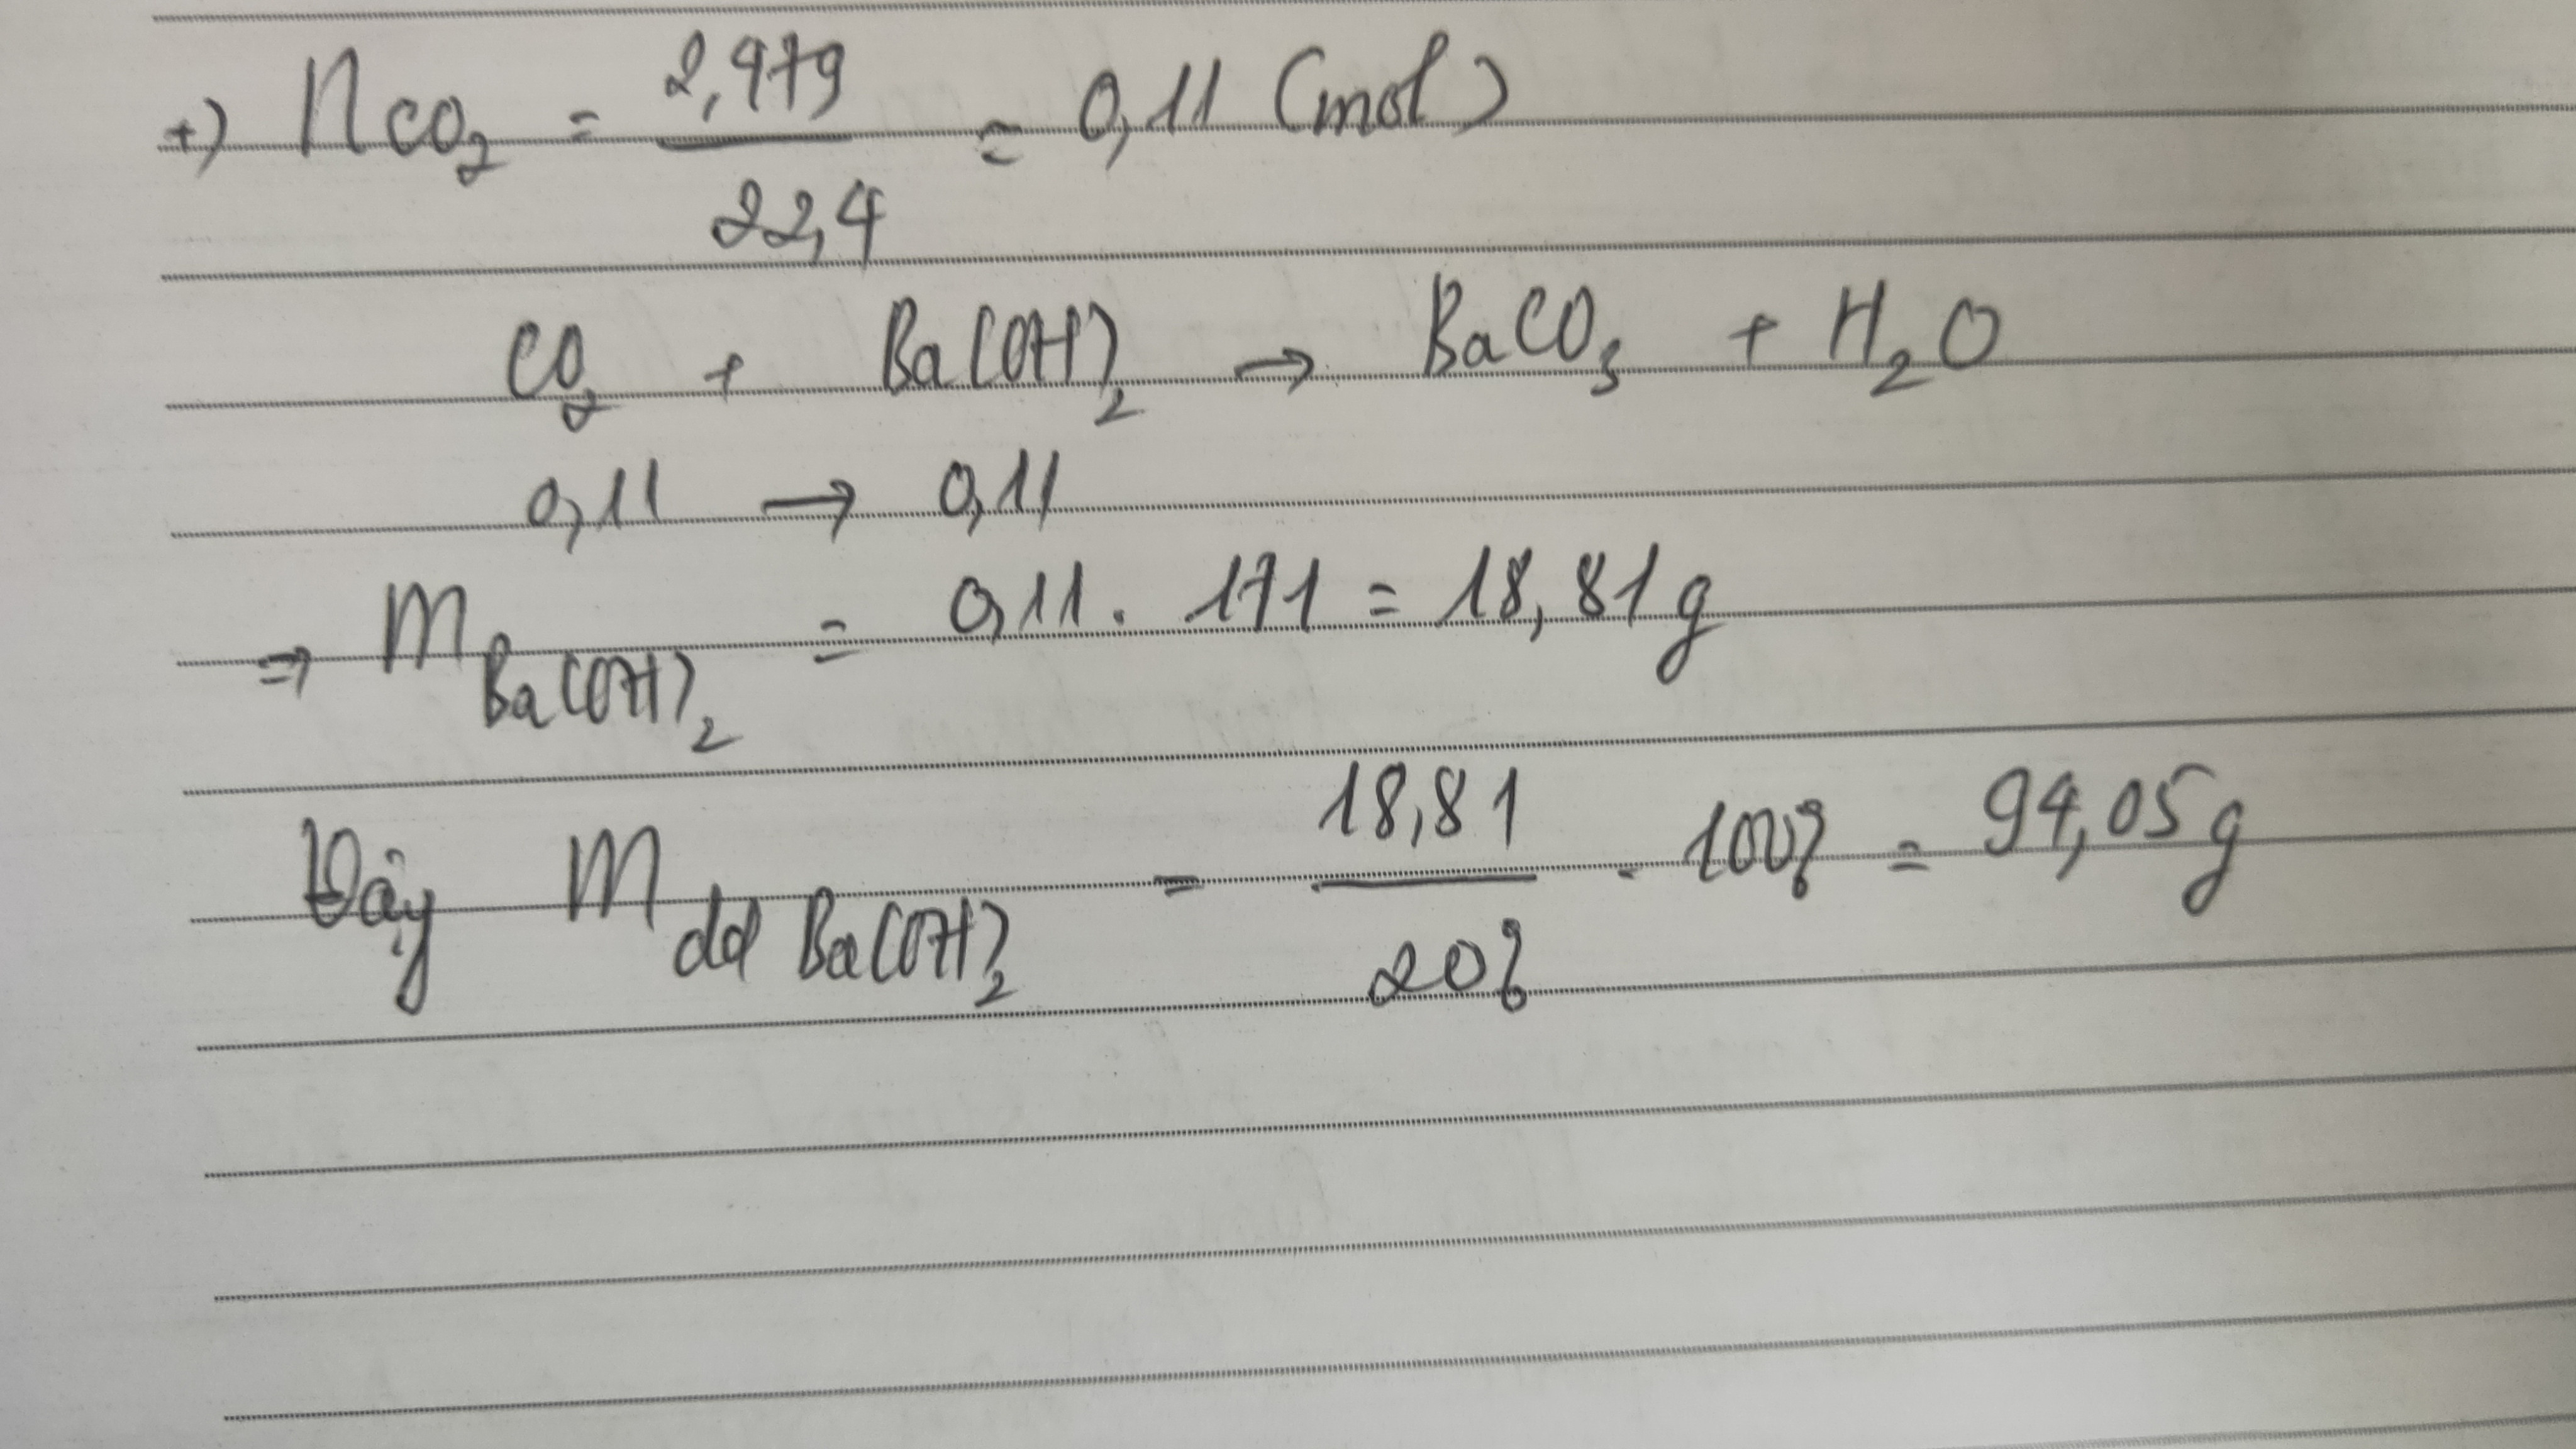 +) nCO2 = 2,479 / 22,4 = 0,11 (mol)
CO2 + Ba(OH)2 → BaCO3 + H2O
0,11 → 0,11
⇒ mBa(OH)2 = 0,11 . 171 = 18,81g
Vậy mdd Ba(OH)2 = 18,81 / 20% . 100% = 94,05g